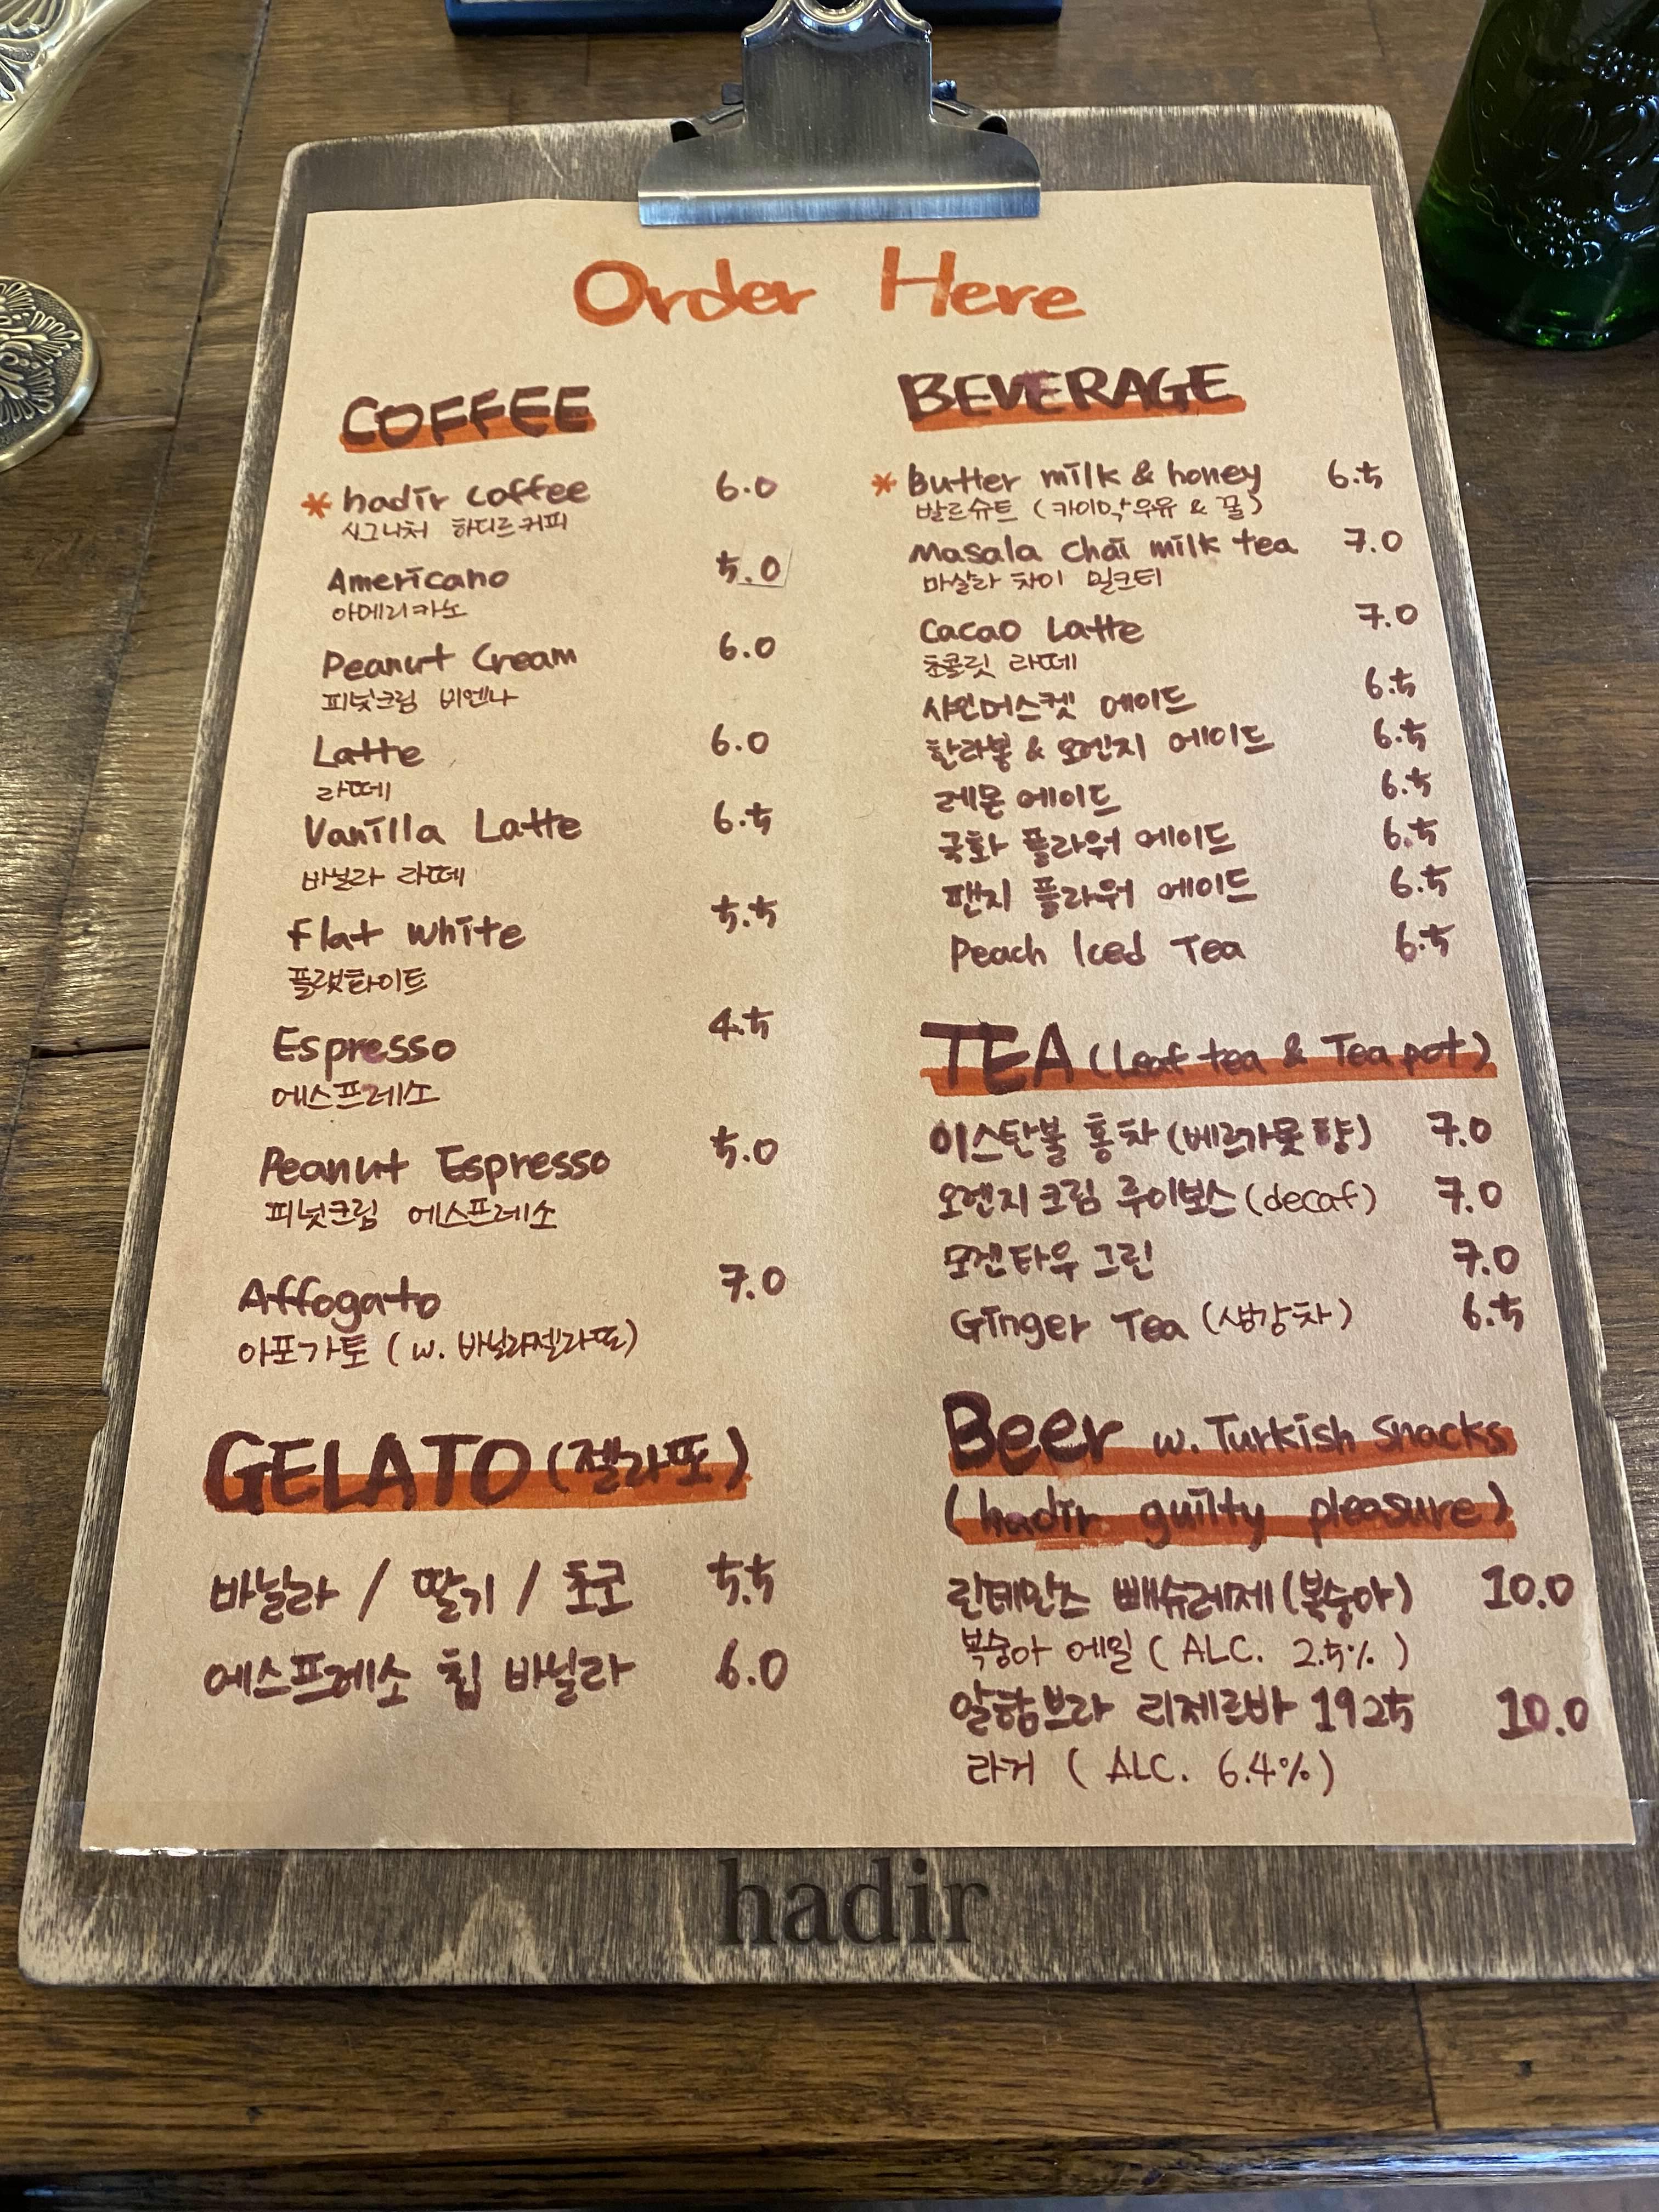 Order Here
COFFEE
* hadir coffee 6.0
시그니처 하디르커피
Americano 5.0
아메리카노
Peanut Cream 6.0
피넛크림 비엔나
Latte 6.0
라떼
Vanilla Latte 6.5
바닐라 라떼
Flat white 5.5
플랫화이트
Espresso 4.5
에스프레소
Peanut Espresso 5.0
피넛크림 에스프레소
Affogato 7.0
아포가토 ( w. 바닐라젤라또)
GELATO (젤라또)
바닐라 / 딸기 / 초코 5.5
에스프레소 칩 바닐라 6.0
BEVERAGE
* Butter milk & honey 6.5
발르슈트 (카이막우유 & 꿀)
Masala chai milk tea 7.0
마살라 차이 밀크티
Cacao Latte 7.0
초콜릿 라떼
샤인머스켓 에이드 6.5
한라봉 & 오렌지 에이드 6.5
레몬 에이드 6.5
국화 플라워 에이드 6.5
팬지 플라워 에이드 6.5
Peach Iced Tea 6.5
TEA (Leaf tea & Tea pot)
이스탄불 홍차 (베르가못 향) 7.0
오렌지 크림 루이보스 (decaf) 7.0
모겐타우 그린 7.0
Ginger Tea (생강차) 6.5
Beer w. Turkish snacks
(hadir guilty pleasure)
린데만스 뻬슈레제 (복숭아) 10.0
복숭아 에일 ( ALC. 2.5% )
알함브라 리제르바 1925 10.0
라거 ( ALC. 6.4%)
hadir